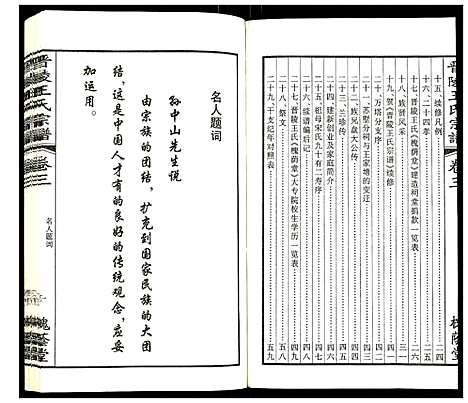 晋陵王氏宗谱
卷三
槐荫堂
十五、续修凡例………二四
十六、二十四孝………二六
十七、晋陵王氏《槐荫堂》建造祠堂捐款一览表
十八、族贤风采
十九、贺《晋陵王氏宗谱》续修
二十、万塔分支序
二十一、族兄盘大公传
二十二、苏墅分祠与王家塘的变迁
二十三、兰珍传………四三
二十四、建新创业及家庭简介………四四
二十五、祖母宋氏九十有二寿序………四七
二十六、续谱编后记………四八
二十七、晋陵王氏《槐荫堂》大专院校生学历一览表
二十八、祭文………五七
二十九、干支纪年对照表………五九
名人题词
孙中山先生说
由宗族的团结，扩充到国家民族的大团
结，这是中国人才有的良好的传统观念，应妥
加运用。
晋陵王氏宗谱
卷三
名人题词
槐荫堂